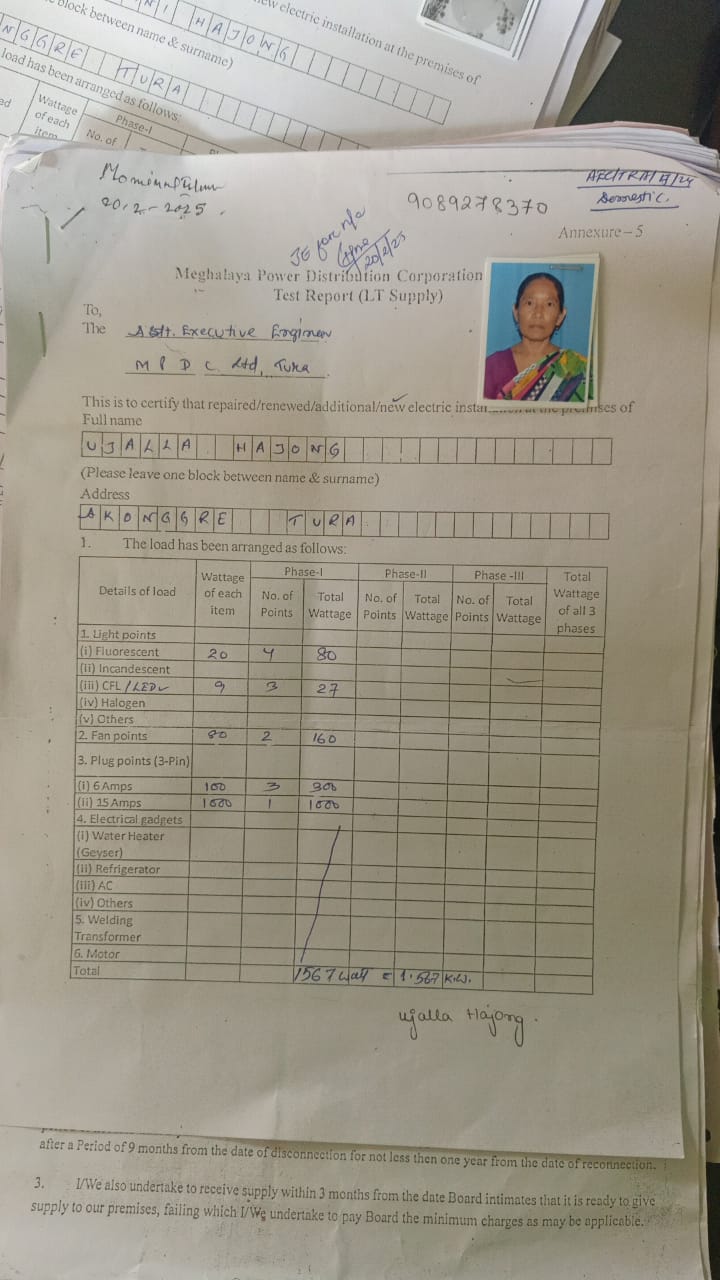 ew electric installation at the premises of
block between name & surname)
HAJONG
NGGRE TURA
load has been arranged as follows:
Wattage
of each
item
Phase-I
No. of
20-2-2025.
9089278370
Domestic.
20/2/25
Annexure-5
Meghalaya Power Distribution Corporation
Test Report (LT Supply)
To,
The Asst. Executive Engineer
M P D C Ltd, Tura
This is to certify that repaired/renewed/additional/new electric instal at the premises of
Full name
UJALLA HAJONG
(Please leave one block between name & surname)
Address
AKONGGRE TURA
1. The load has been arranged as follows:
Details of load Wattage of each item Phase-I Phase-II Phase -III Total Wattage of all 3 phases
No. of Points Total Wattage No. of Points Total Wattage No. of Points Total Wattage
1. Light points
(i) Fluorescent 20 4 80
(ii) Incandescent
(iii) CFL /LED 9 3 27
(iv) Halogen
(v) Others
2. Fan points 80 2 160
3. Plug points (3-Pin)
(i) 6 Amps 100 3 300
(ii) 15 Amps 1000 1 1000
4. Electrical gadgets
(i) Water Heater
(Geyser)
(ii) Refrigerator
(iii) AC
(iv) Others
5. Welding
Transformer
6. Motor
Total 1567 watt = 1.567 K.W.
Ujalla Hajong.
after a Period of 9 months from the date of disconnection for not less then one year from the date of reconnection.
3. I/We also undertake to receive supply within 3 months from the date Board intimates that it is ready to give
supply to our premises, failing which I/We undertake to pay Board the minimum charges as may be applicable.